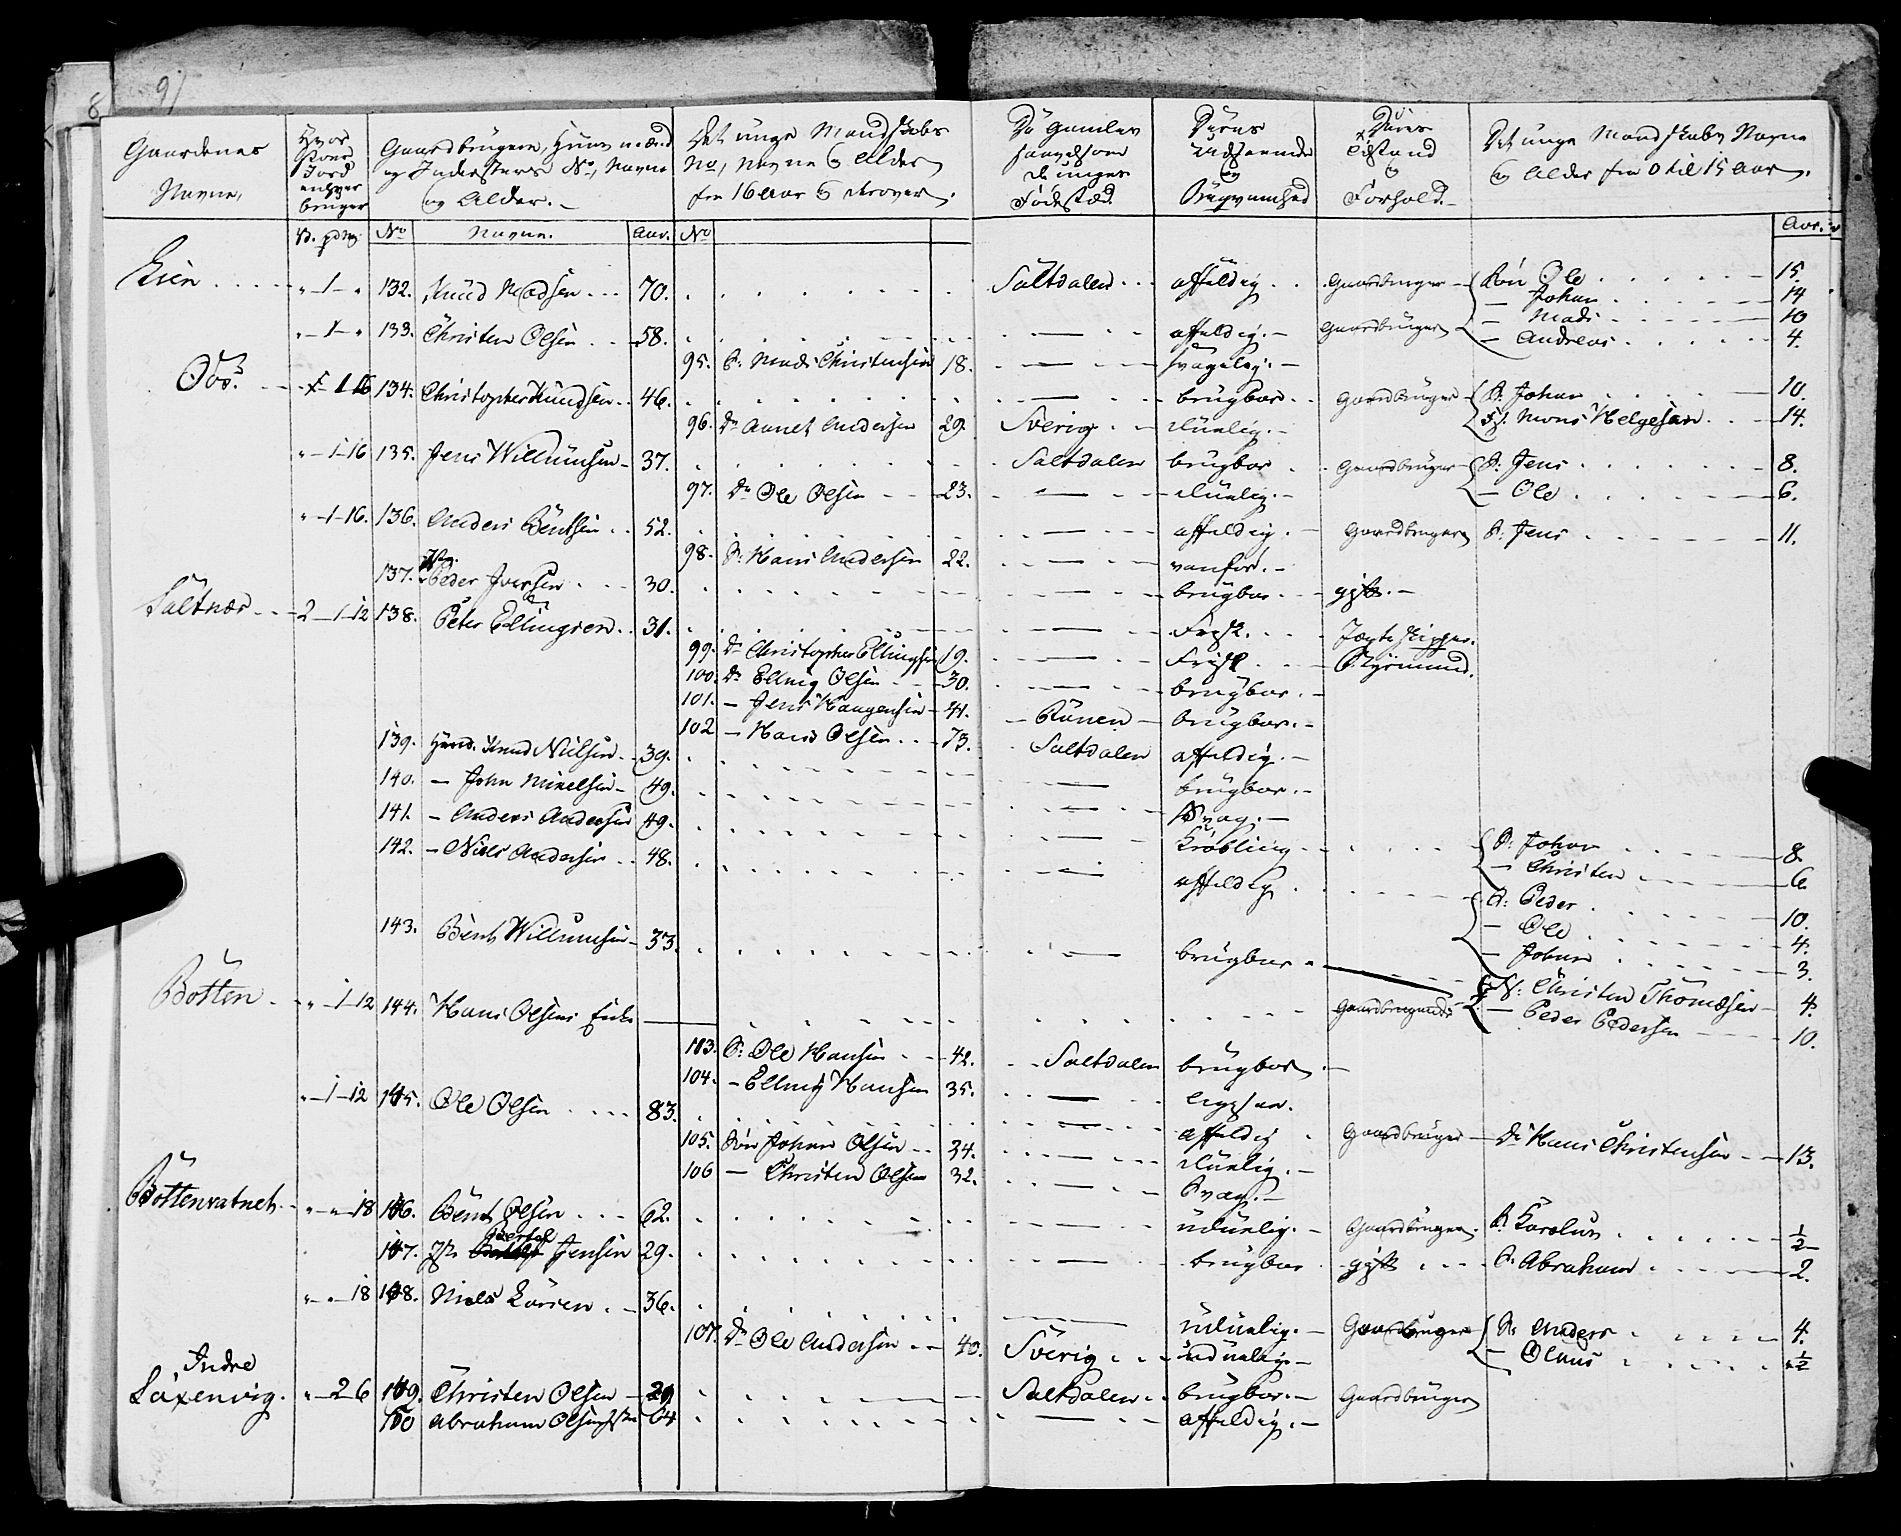 8
9)
Gaardenes Navne,
Hvor stor Jord enhver bruger
Gaardbrugere, Huusmænd og Indersters No, Navne og Alder. –
Det unge Mandskabs No, Navne og Alder fra 16 aar og derover.
De gamles saavelsom de unges Fødested.
Deres Udseende og Brugbarhed
Deres Tilstand og Forhold. –
Det unge Mandskabs Navne og Alder fra 0 til 15 Aar.
V. pd m. No Navne. Aar. No Aar.
132. Knud Madsen 70. Saltdalen affeldig Gaardbruger Søn Ole 15.
– Johan 14
133. Christen Olsen 58. affeldig. – Gaardbruger – Mads 10
– Andreas 4.
95. S: Mads Christensen 18. svagelig. –
1 16 134. Christopher Knudsen 46. brugbar Gaardbruger S: Johan 10.
96. Dr. Annet Andersen 29. Sverig duelig. – Mons Helgesen 14.
1-16 135. Jens Willumsen 37. Saltdalen brugbar Gaardbruger S: Jens 8.
97. Dr Ole Olsen 23. duelig. – – Ole 6.
1-16. 136. Anders Bentsen 52. affeldig. – Gaardbruger S: Jens 11.
98. S: Hans Andersen 22. vanfør. –
137. Peder Iversen 30. brugbar gift. –
Saltnæs 2 – 1 12 138. Peter Ellingsen 31. Frisk. Jægteskipper.
99. Dr Christopher Ellingsen 19. Frisk Styrmand.
100. Dr Elling Olsen 30. brugbar. –
101. – Jens Haagensen 41. Ranen brugbar. –
102 – Hans Olsen 73. Saltdalen affeldig. –
139. Huusm. Knud Nielsen 39. brugbar. –
140. – John Mikelsen 49. Svag. –
141. – Anders Andersen 49. Krøbling S: Johan 8.
– Christen 6
142. – Niels Andersen 48. affeldig S: Peder 10.
– Ole 4.
– Johan 3.
143. Bent Willumsen 33. brugbar N: Christen Thomesen 4.
Botten 1-12 144. Hans Olsens Enke Gaardbrugende – Peder Pedersen 10.
103. S: Ole Hansen 42. Saltdalen brugbar –
104. – Elling Hansen 35.
1-12 145. Ole Olsen 83. affeldig Gaardbruger Dr Hans Christensen 13.
105. Søn Johan Olsen 34. duelig. –
106 – Christen Olsen 32. Svag. –
Bottenvatnet 18 146. Bent Olsen 62. uduelig. – Gaardbruger. S: Karolus ½
147. Jertel Jensen 29. brugbar gift S: Abraham 2.
18 148. Niels Larsen 36. uduelig. – Gaardbruger S: Anders 4.
– Olaus ½
107. Dr Ole Andersen 40. Sverig uduelig –
Indre
Saxenvig. 2 6 149. Christen Olsen 29 Saltdalen brugbar. – Gaardbruger
150 Abraham 64 affeldig. –